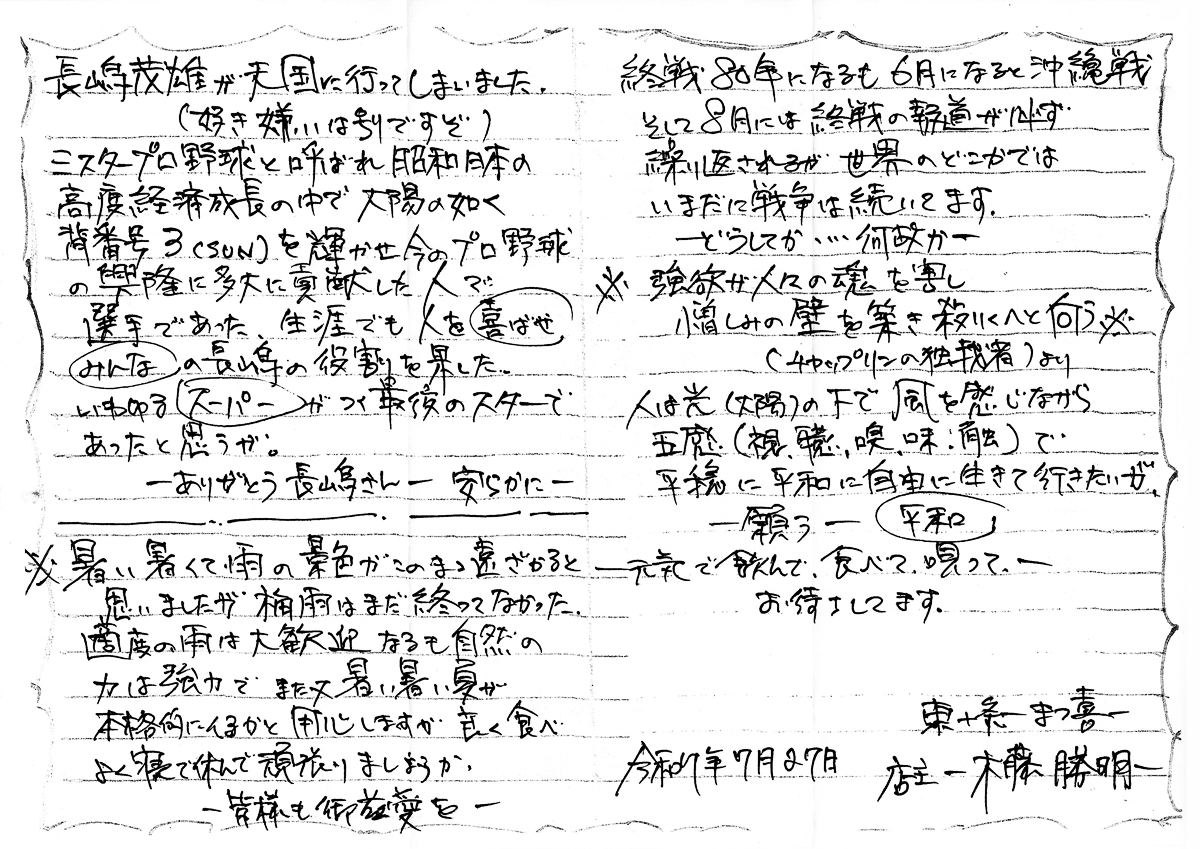 長嶋茂雄が天国に行ってしまいました.
(好き嫌いは別ですぞ)
ミスタープロ野球と呼ばれ昭和日本の
高度経済成長の中で太陽の如く
背番号3(SUN)を輝かせ今のプロ野球
の興隆に多大に貢献した人で
選手であった、生涯でも人を喜ばせ
みんなの長嶋の役割を果した.
いわゆるスーパーがつく最後のスターで
あったと思うが。
ーありがとう長嶋さんー 安らかにー
※ 暑い暑くて雨の景色がこのまゝ遠ざかると
思いましたが梅雨はまだ終ってなかった.
適度の雨は大歓迎なるも自然の
力は強力でまた又暑い暑い夏が
本格的にくるかと用心しますが良く食べ
よく寝て休んで頑張りましょうか.
ー皆様も御自愛をー
終戦80年になるも6月になると沖縄戦
そして8月には終戦の報道が必ず
繰り返されるが世界のどこかでは
いまだに戦争は続いてます.
ーどうしてか・・・・何故かー
※ 強欲が人々の魂を害し
憎しみの壁を築き殺りくへと向う※
(チャップリンの独裁者)より
人は光(太陽)の下で風を感じながら
五感(視、聴、嗅、味、触)で
平穏に平和に自由に生きて行きたいが.
ー願うー 平和
ー元気で飲んで、食べて、唄って、ー
お待ちしてます.
東十条ーまつ喜ー
令和7年7月27日
店主ー木藤勝明ー